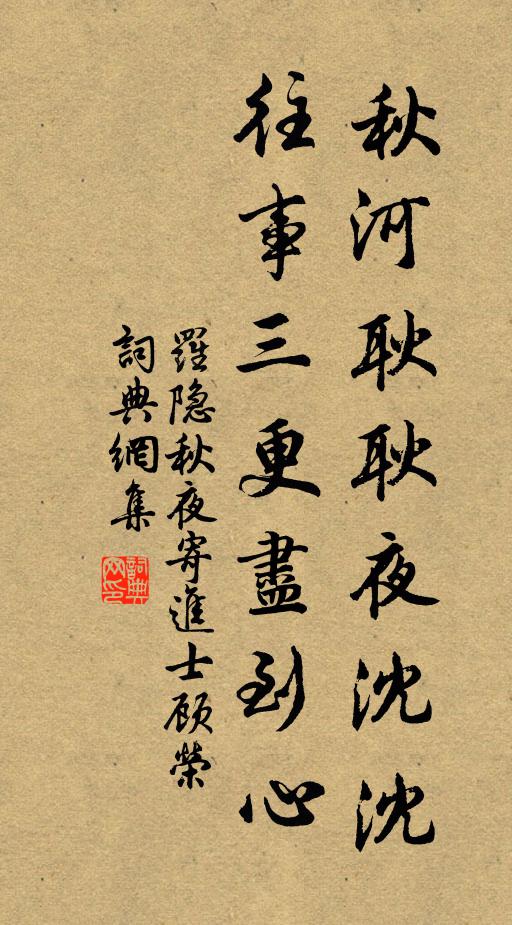 秋河耿耿夜沈沈
往事三更盡到心
羅隐秋夜寄進士顾榮
詞典網集
詞典网印